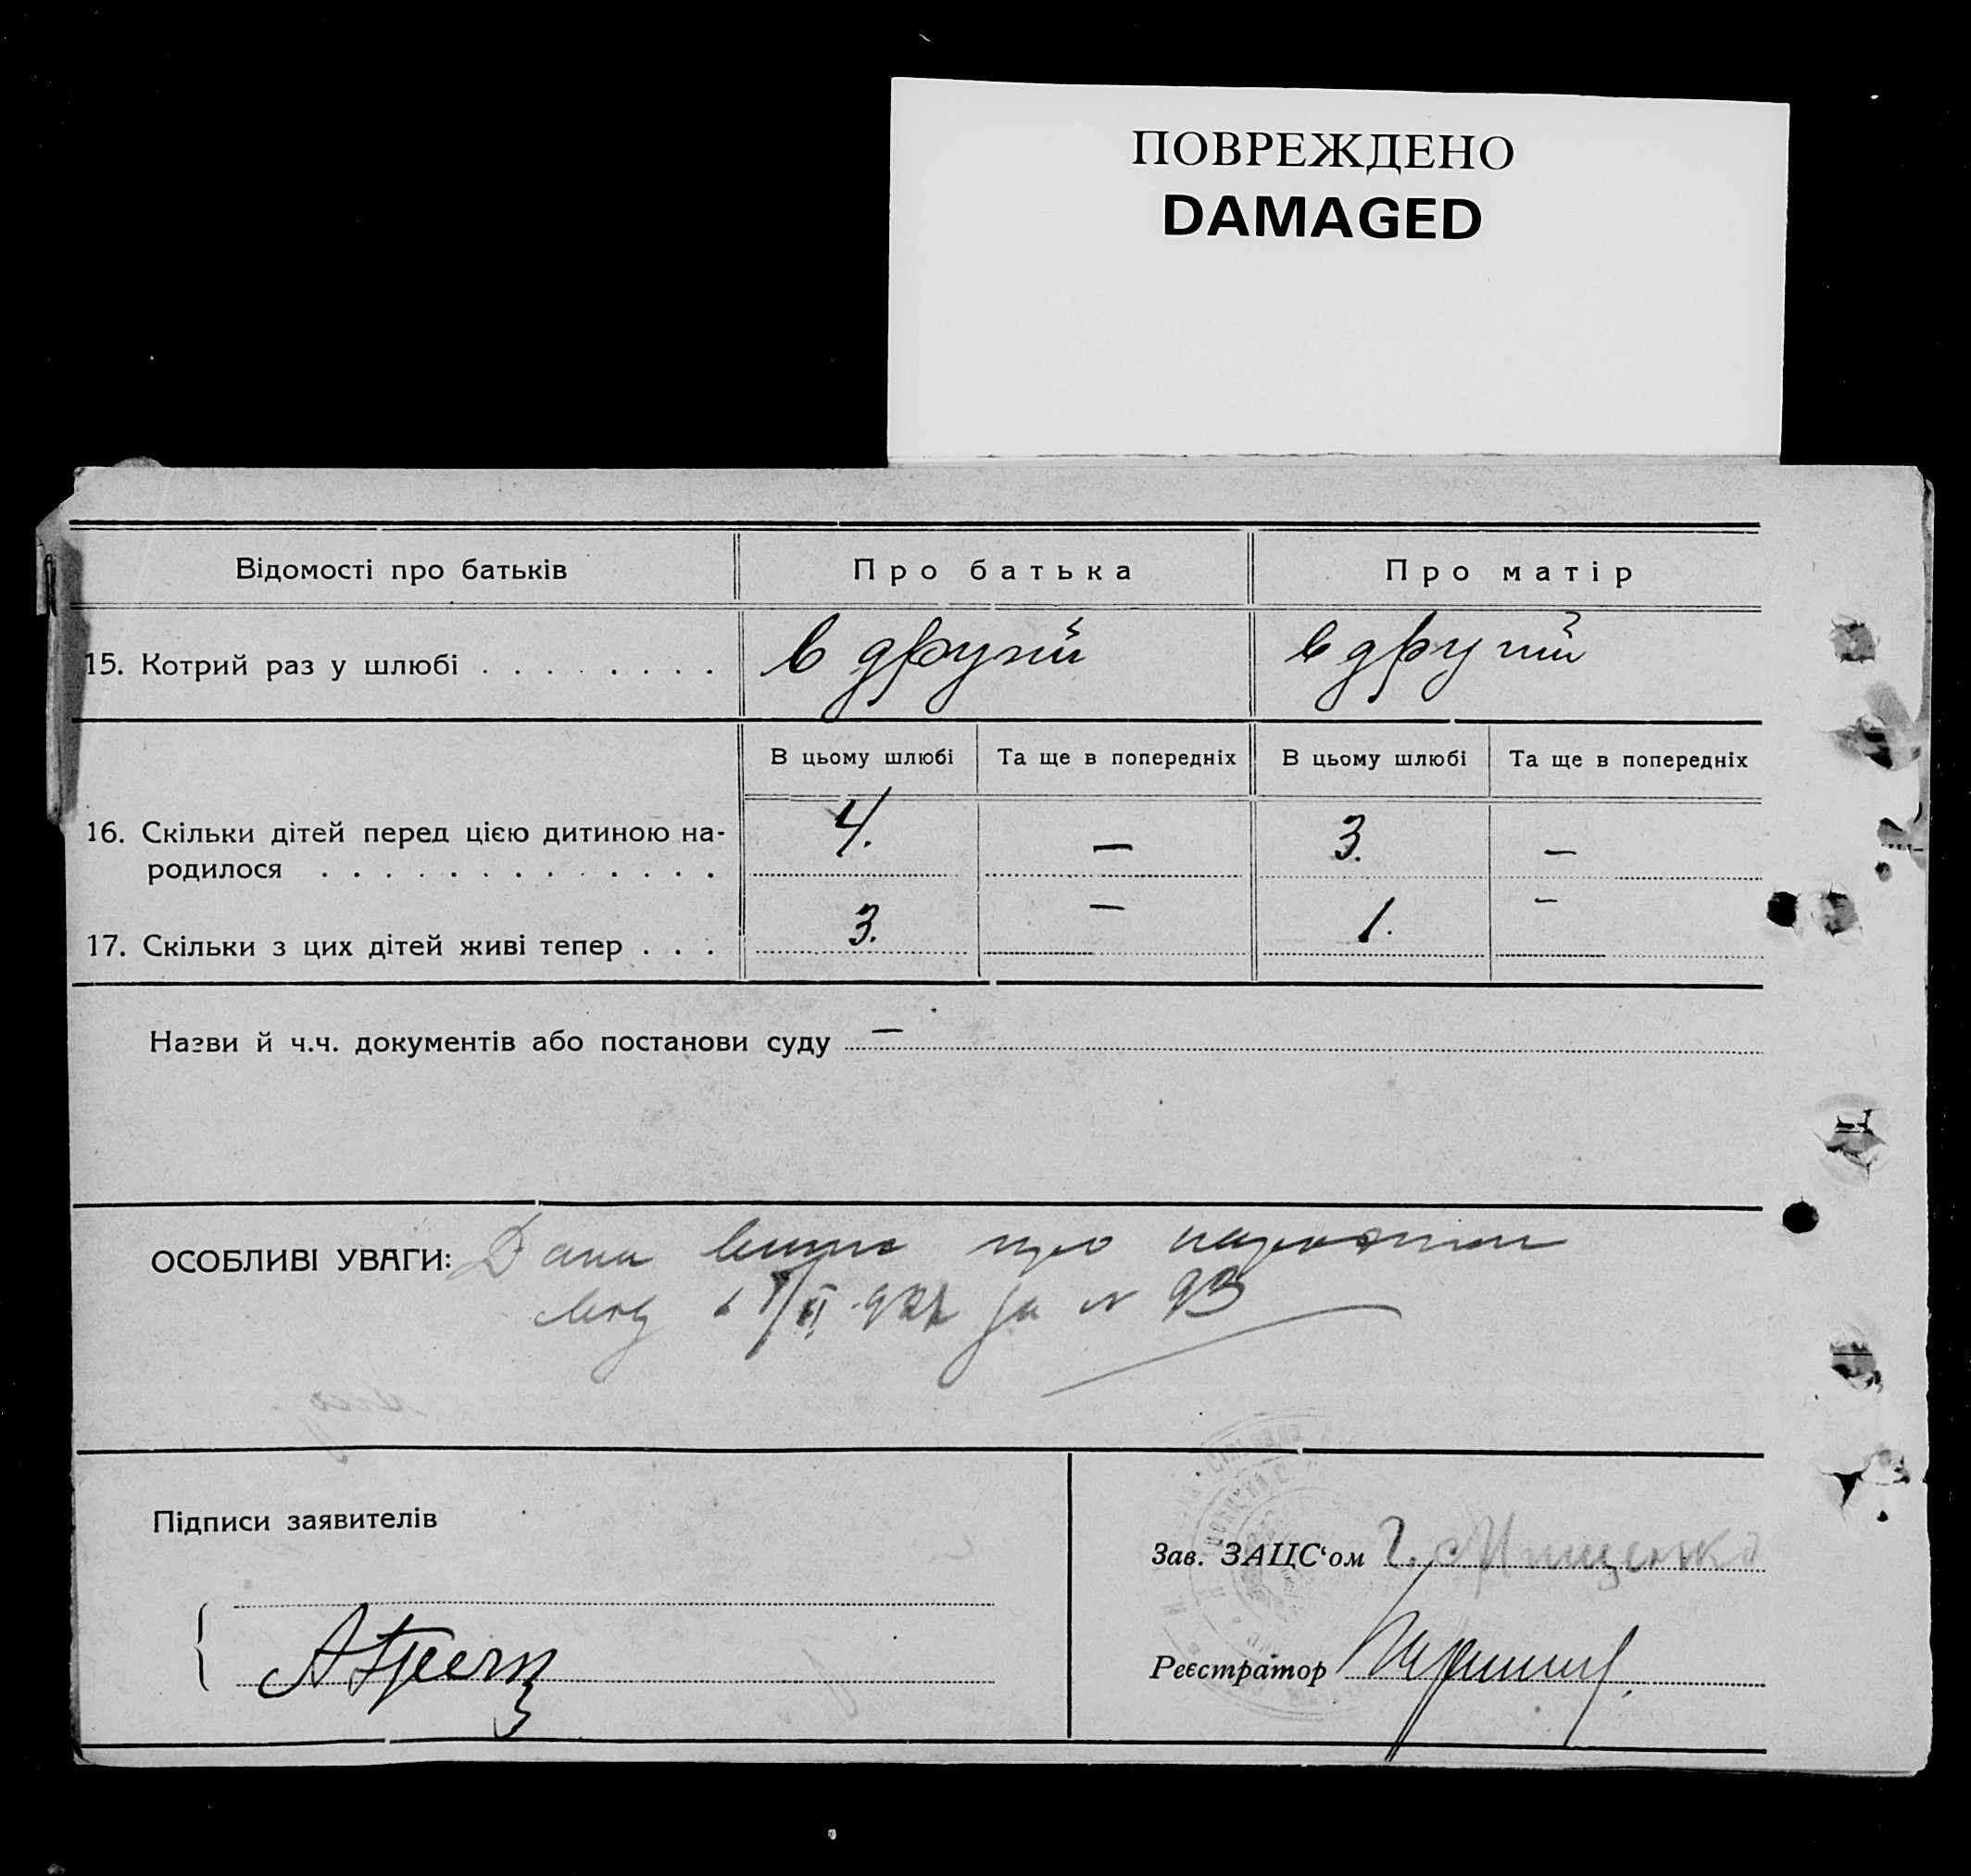 ПОВРЕЖДЕНО
DAMAGED
Відомості про батьків
Про батька
Про матір
15. Котрий раз у шлюбі
в другий
в другий
В цьому шлюбі
Та ще в попередніх
В цьому шлюбі
Та ще в попередніх
16. Скільки дітей перед цією дитиною на-
родилося
4.
—
3.
—
17. Скільки з цих дітей живі тепер
3.
—
1.
—
Назви й ч.ч. документів або постанови суду —
ОСОБЛИВІ УВАГИ: Дана про
за № 93
Підписи заявителів
Зав. ЗАЦС‘ом Г. Міщенко
Реєстратор